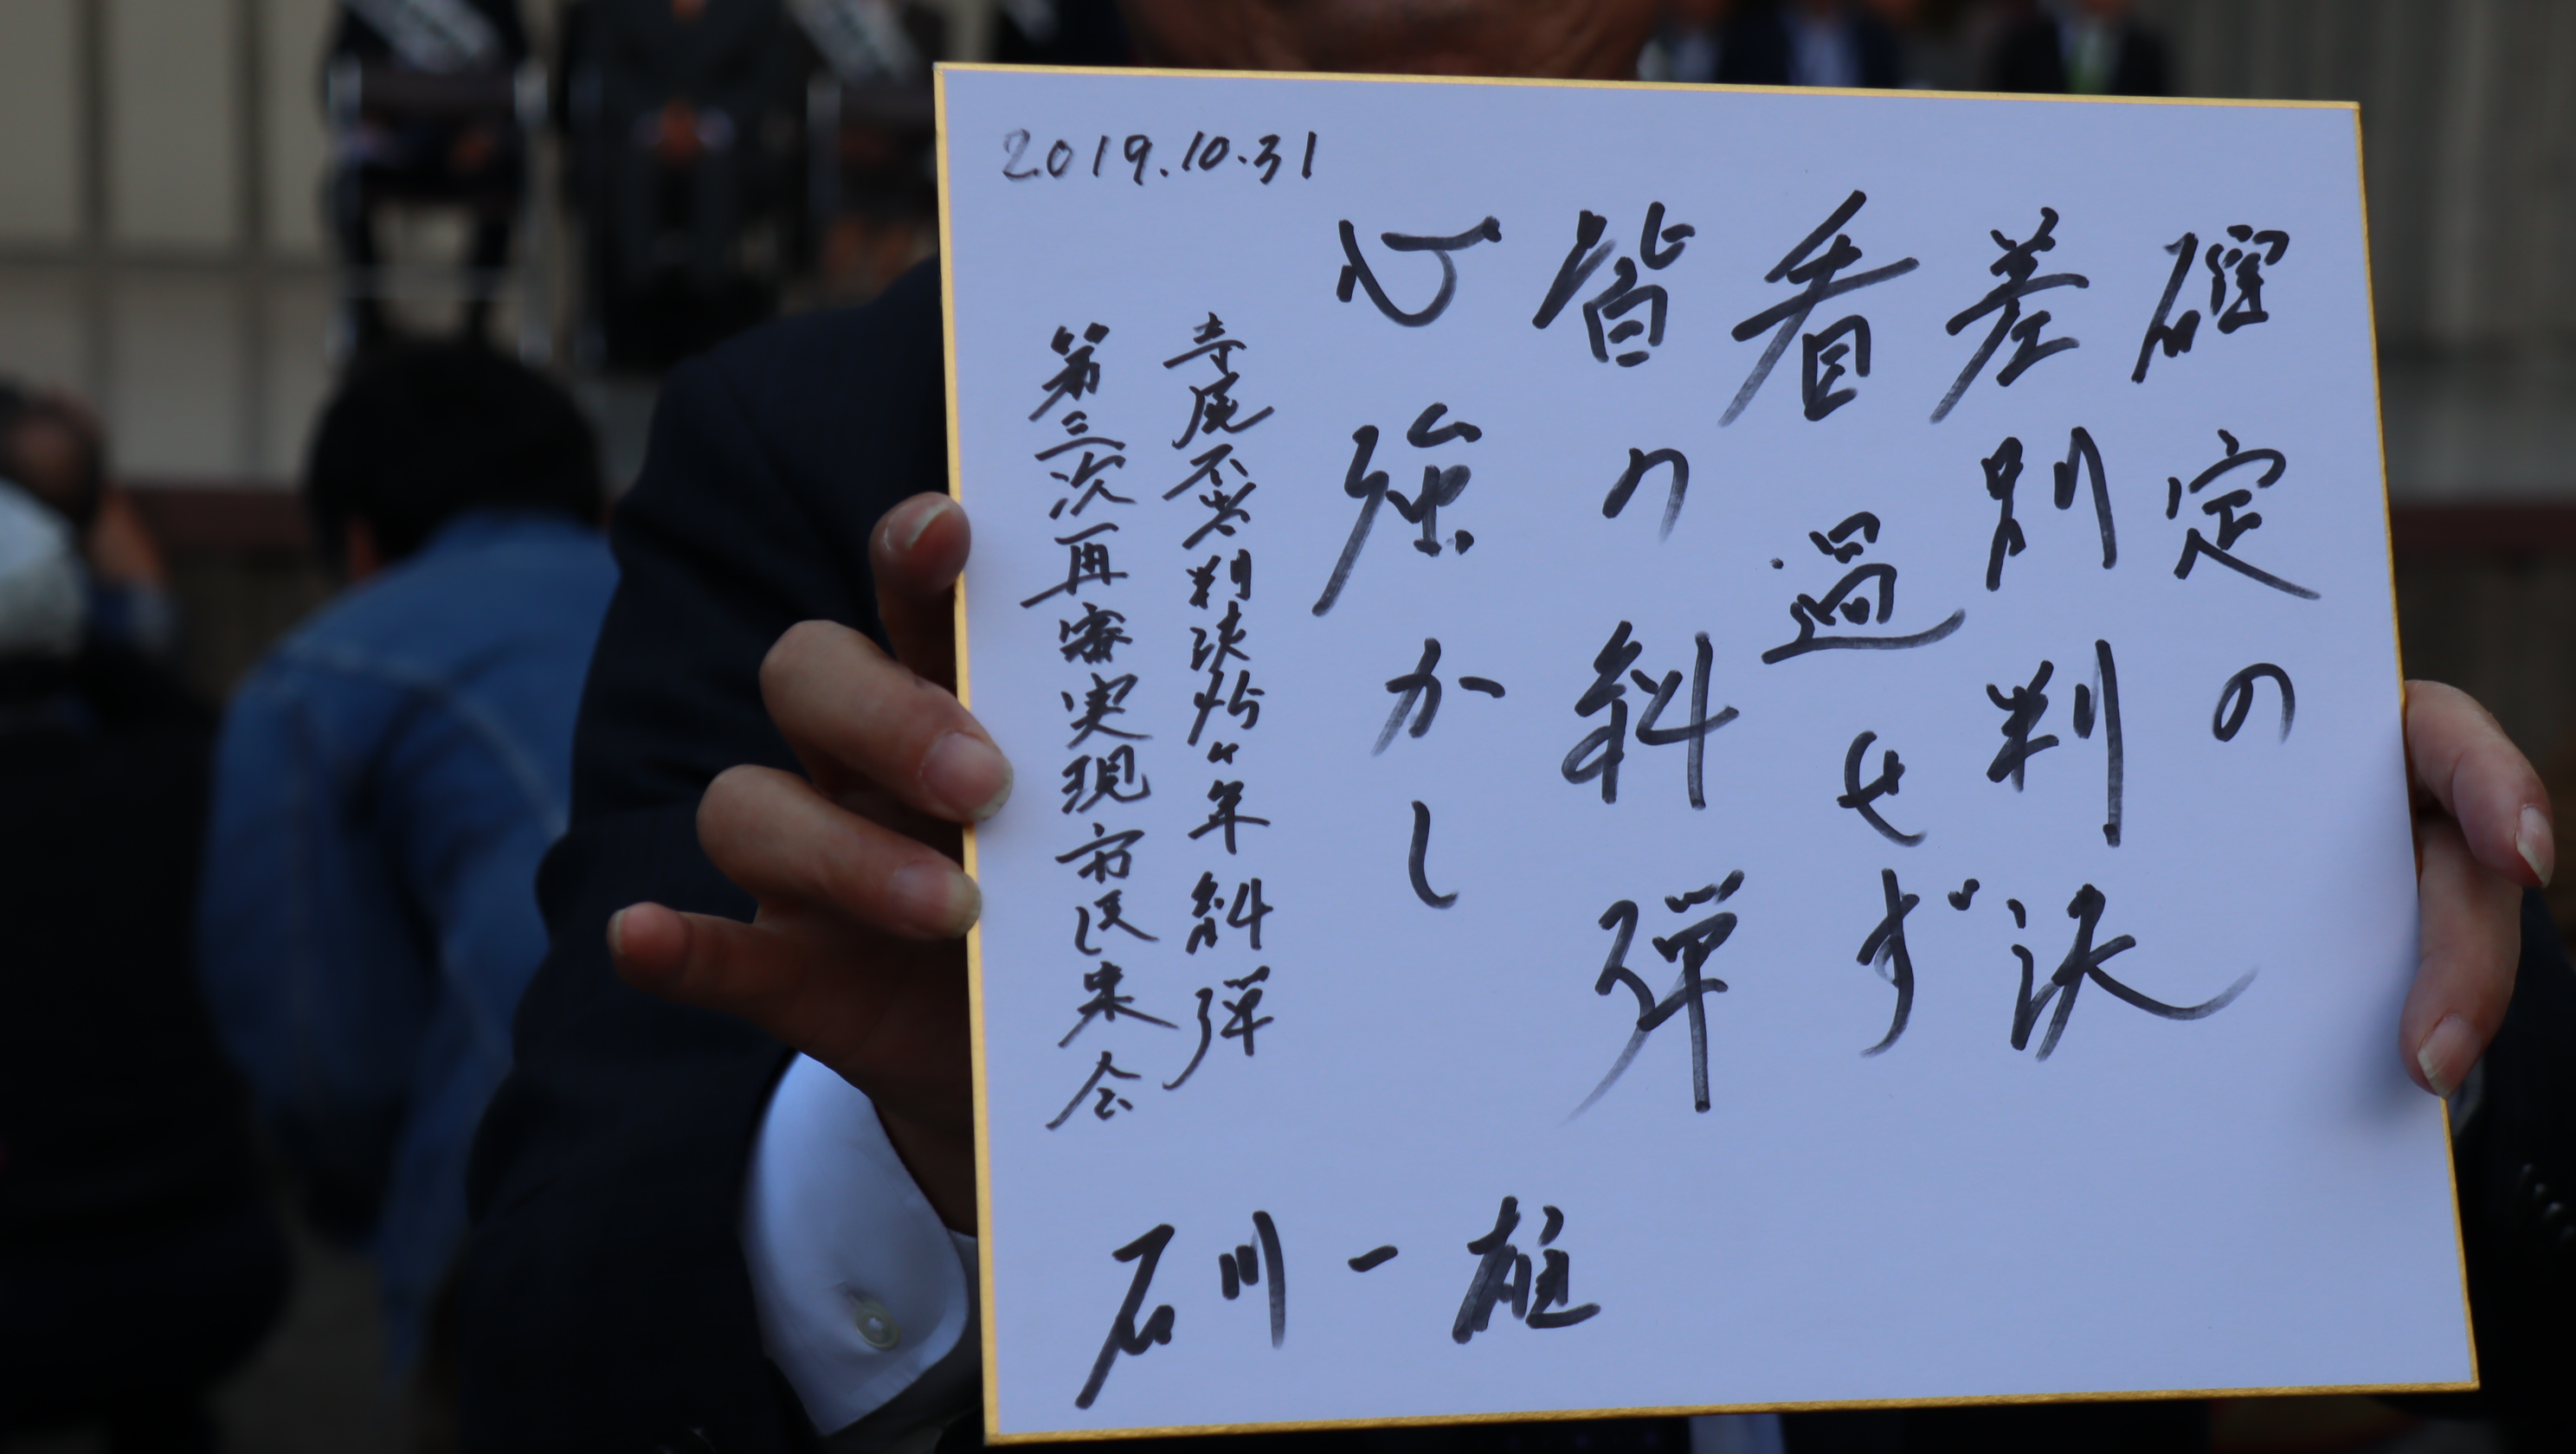 2019.10.31
確定の
差別判決
看過せず
皆の糾弾
心強かし
寺尾不当判決45ヶ年糾弾
第三次再審実現市民集会
石川一雄